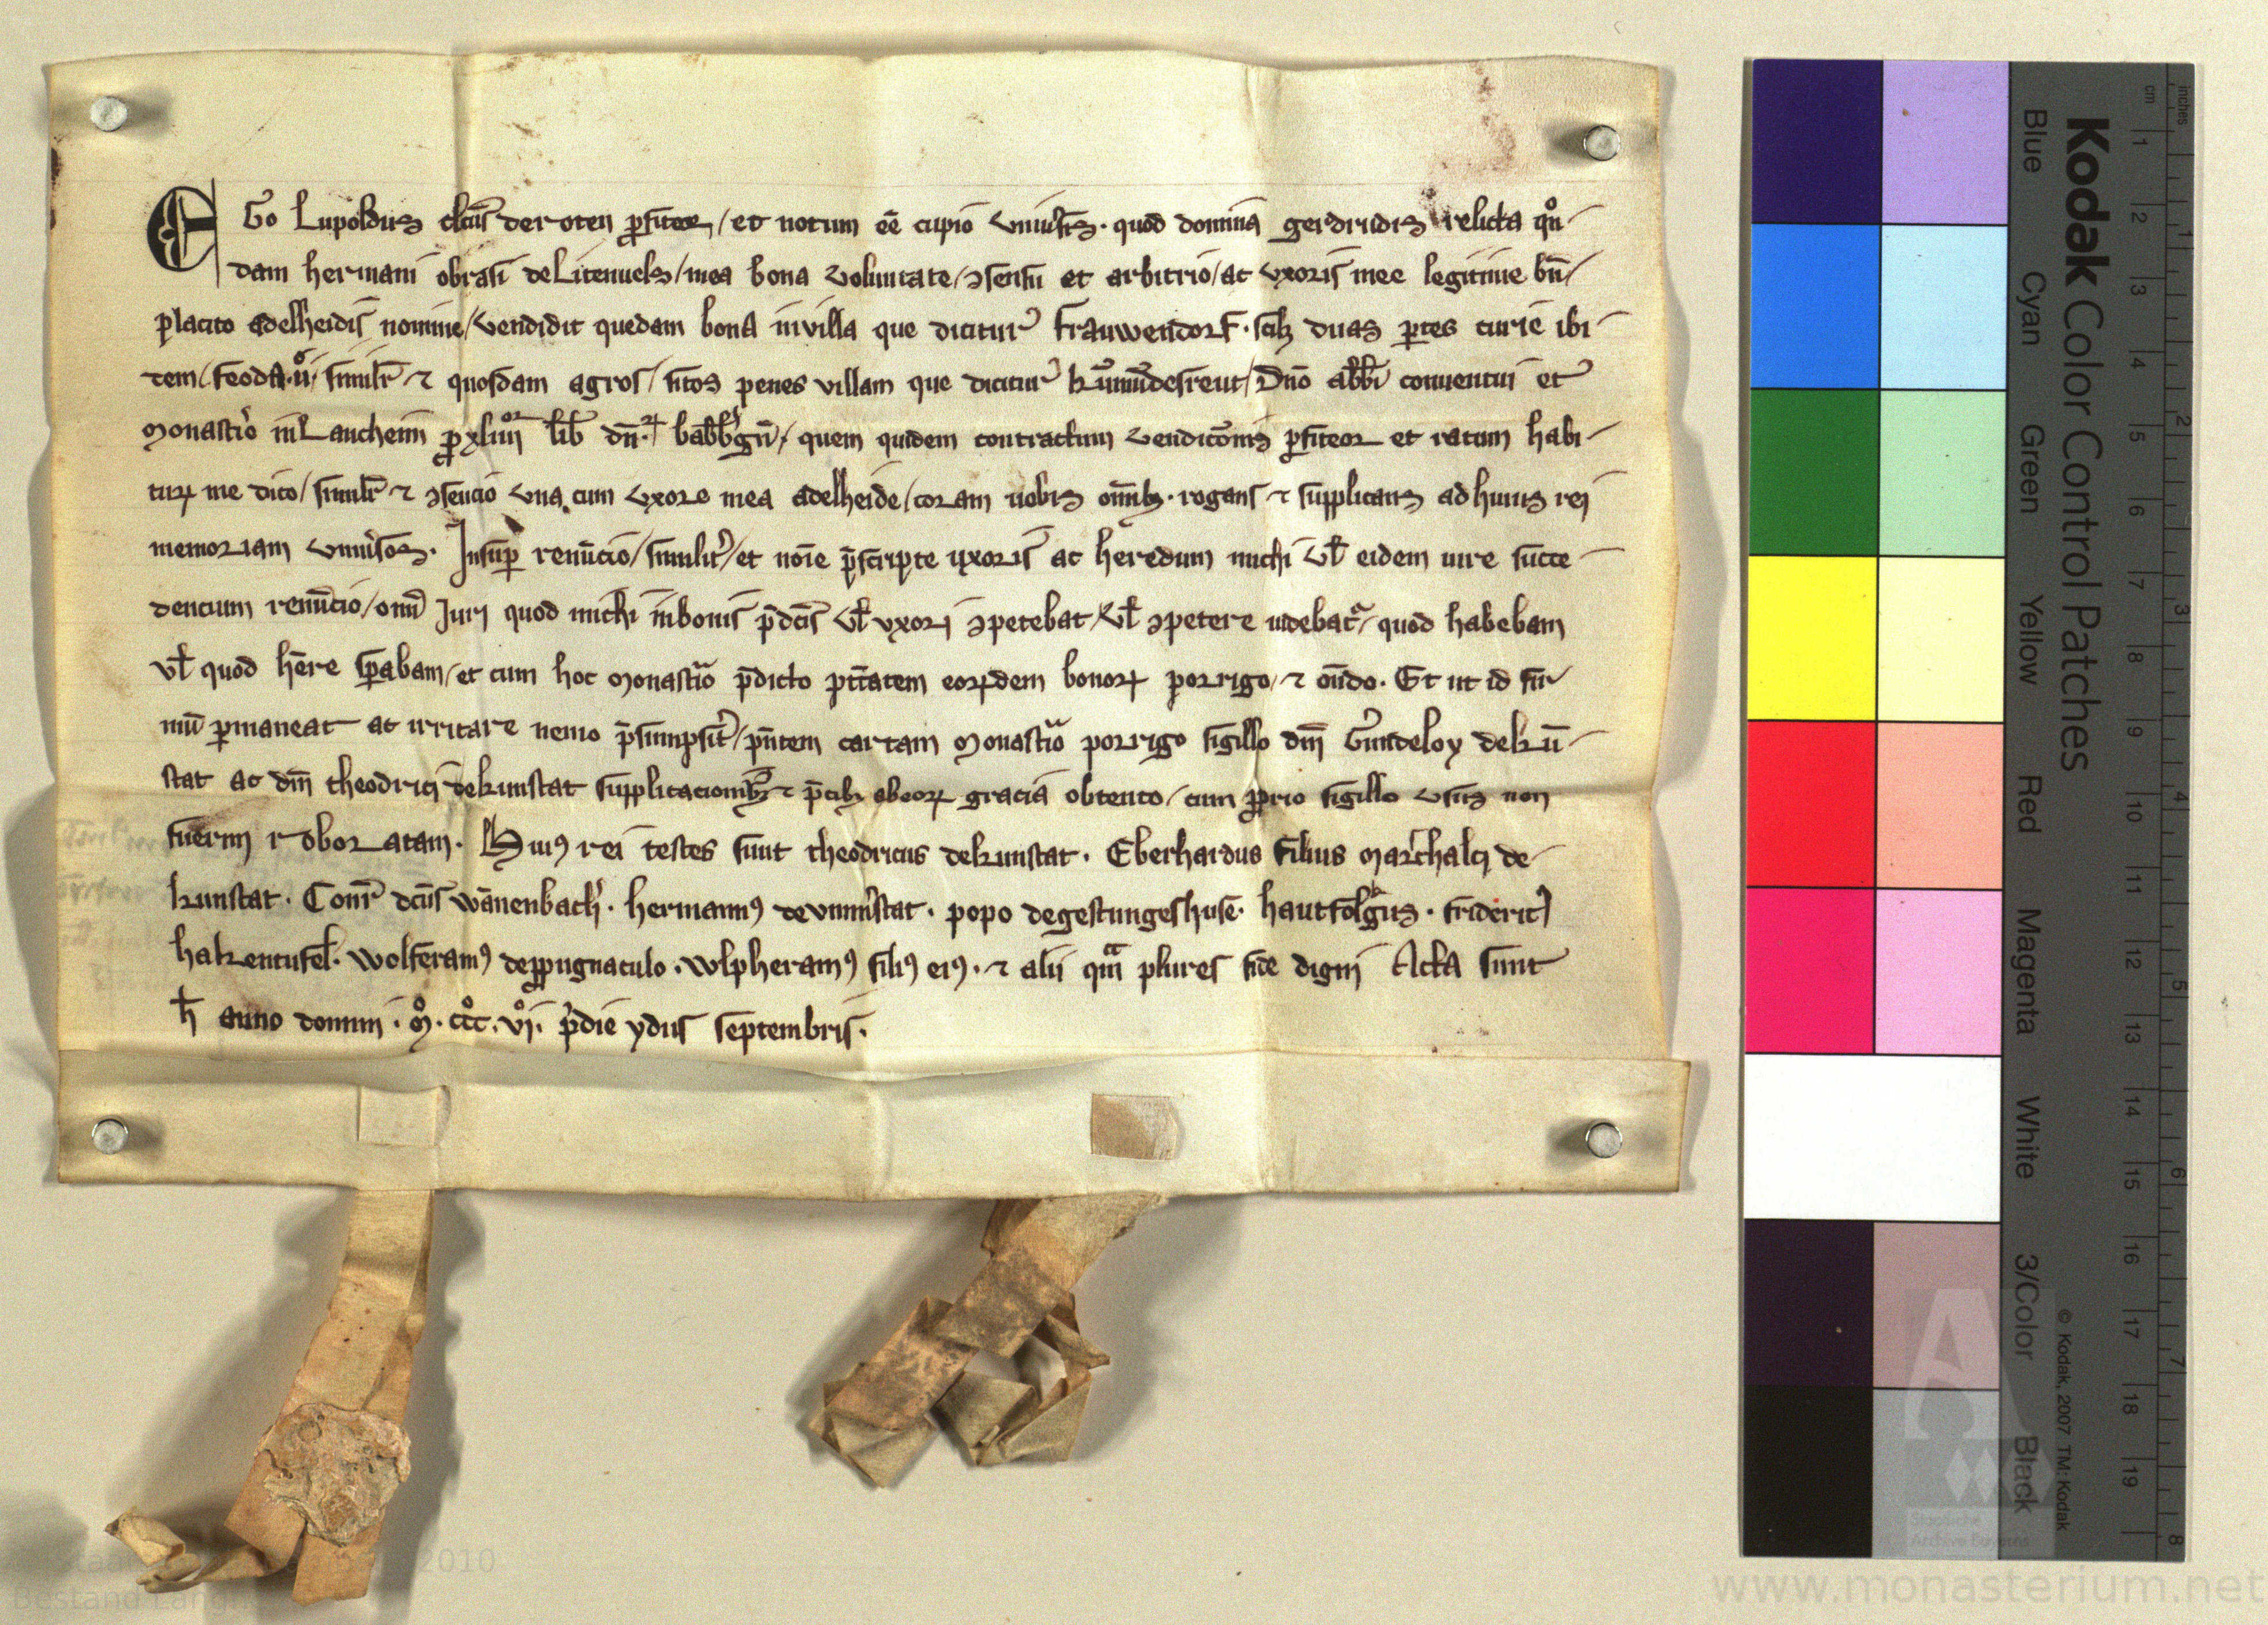 EGo Lupoldus dcūs der oten ꝓfiteor / et notum eē cupio Vniu͛sis · quod domina gerdrudis relicta qͦn-
dam hermani obrasi de Litenuels / mea bona Voluntate / ꝯsensu et arbitrio / ac vxoris mee legitime bn̄-
placito adelheidis nomine / Vendidit quedam bona in villa que dicitur frauwendorf · scilꝫ duas ꝑtes curie ibi-
dem / feoda · simil̄r ⁊ quosdam agros / sitos penes villam que dicitur kuͦnmuͦdesreut / Dn̄o abb̄i conuentui et
Monast͛io in Lancheim ꝓ xliiij lib̄ dn̄ · babb͛gn̄ / quem quidem contractum Vendicōnis ꝓfiteor et ratum habi-
tuꝝ me dico / simil̄r ⁊ ꝯsencio Vna cum Vxore mea adelheide / coram uobis om̄ibꝫ · rogans ⁊ supplicans ad huius rei
memoriam Vniu͛sos · Insuꝑ renūcio / similit͛ / et noīe p̄scripte uxoris ac heredum michi Vl̄ eidem iure succe-
dencium renūcio / omī Juri quod michi in bonis p̄dcīs Vl̄ vxori ꝯpetebat / Vl̄ ꝯpetere uidebat᷑ / quod habebam
vl̄ quod hēre sꝑabam / et cum hoc Monast͛io p̄dicto ptātem eoꝝdem bonoꝝ porrigo / ⁊ on̄do · Et ut id fir-
mū ꝑmaneat ac irritare nemo p̄sumpsit͛ / pn̄tem cartam Monast͛io porrigo sigillo dn̄i Gundeloy de kū-
stat ac dn̄i theodrici de kunstat supplicacionibꝫ ⁊ p̄cibꝫ ab eoꝝ gracia obtento / cum ꝓprio sigillo Vsus non
fuerim roboratam · Huiꝰ rei testes sunt theodricus de kunstat · Eberhardus filius Marschalci de
kunstat · Conr̄ dcūs wānenbach͛ · hermannꝰ de vnin͛stat · popo de gestungeshusē · hautfolgͤus · frideric͛
hakentufel · wolferamꝰ de ꝓpugnaculo · wlpheramꝰ filiꝰ eiꝰ · ⁊ alii qm̄ plures fide digni Acta sunt
h̄ anno domini · Mͦ · cͦcc · vͦj · p͛die ydus septembris ·
Kodak Color Control Patches
Blue Cyan Green Yellow Red Magenta White 3/Color Black
© Kodak, 2007 TM: Kodak
cm 1 2 3 4 5 6 7 8 9 10 11 12 13 14 15 16 17 18 19
inches 1 2 3 4 5 6 7 8
Staatliche
Archive Bayerns
2010
Bestand Langh
www.monasterium.net